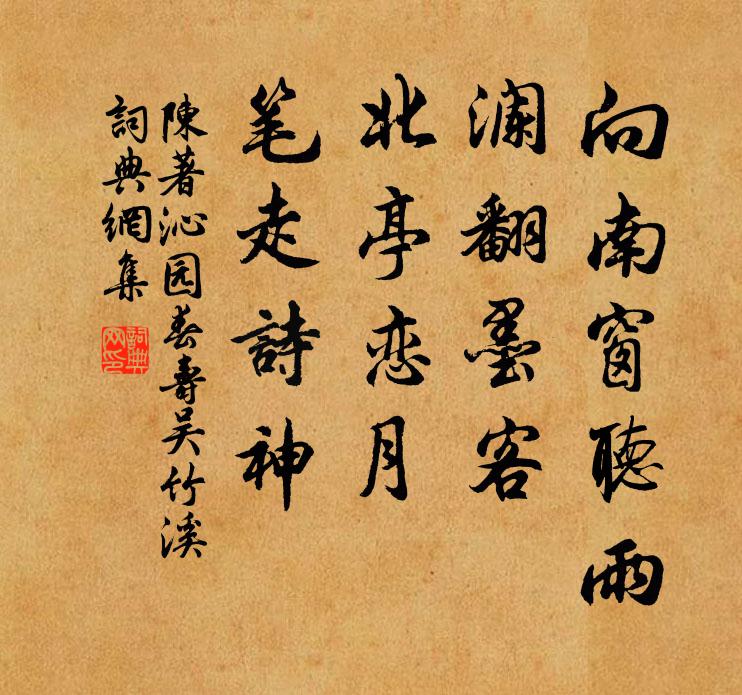 向南窗聽雨
瀾翻墨客
北亭恋月
笔走詩神
陳著沁园春壽吴竹溪
詞典網集
詞典网印